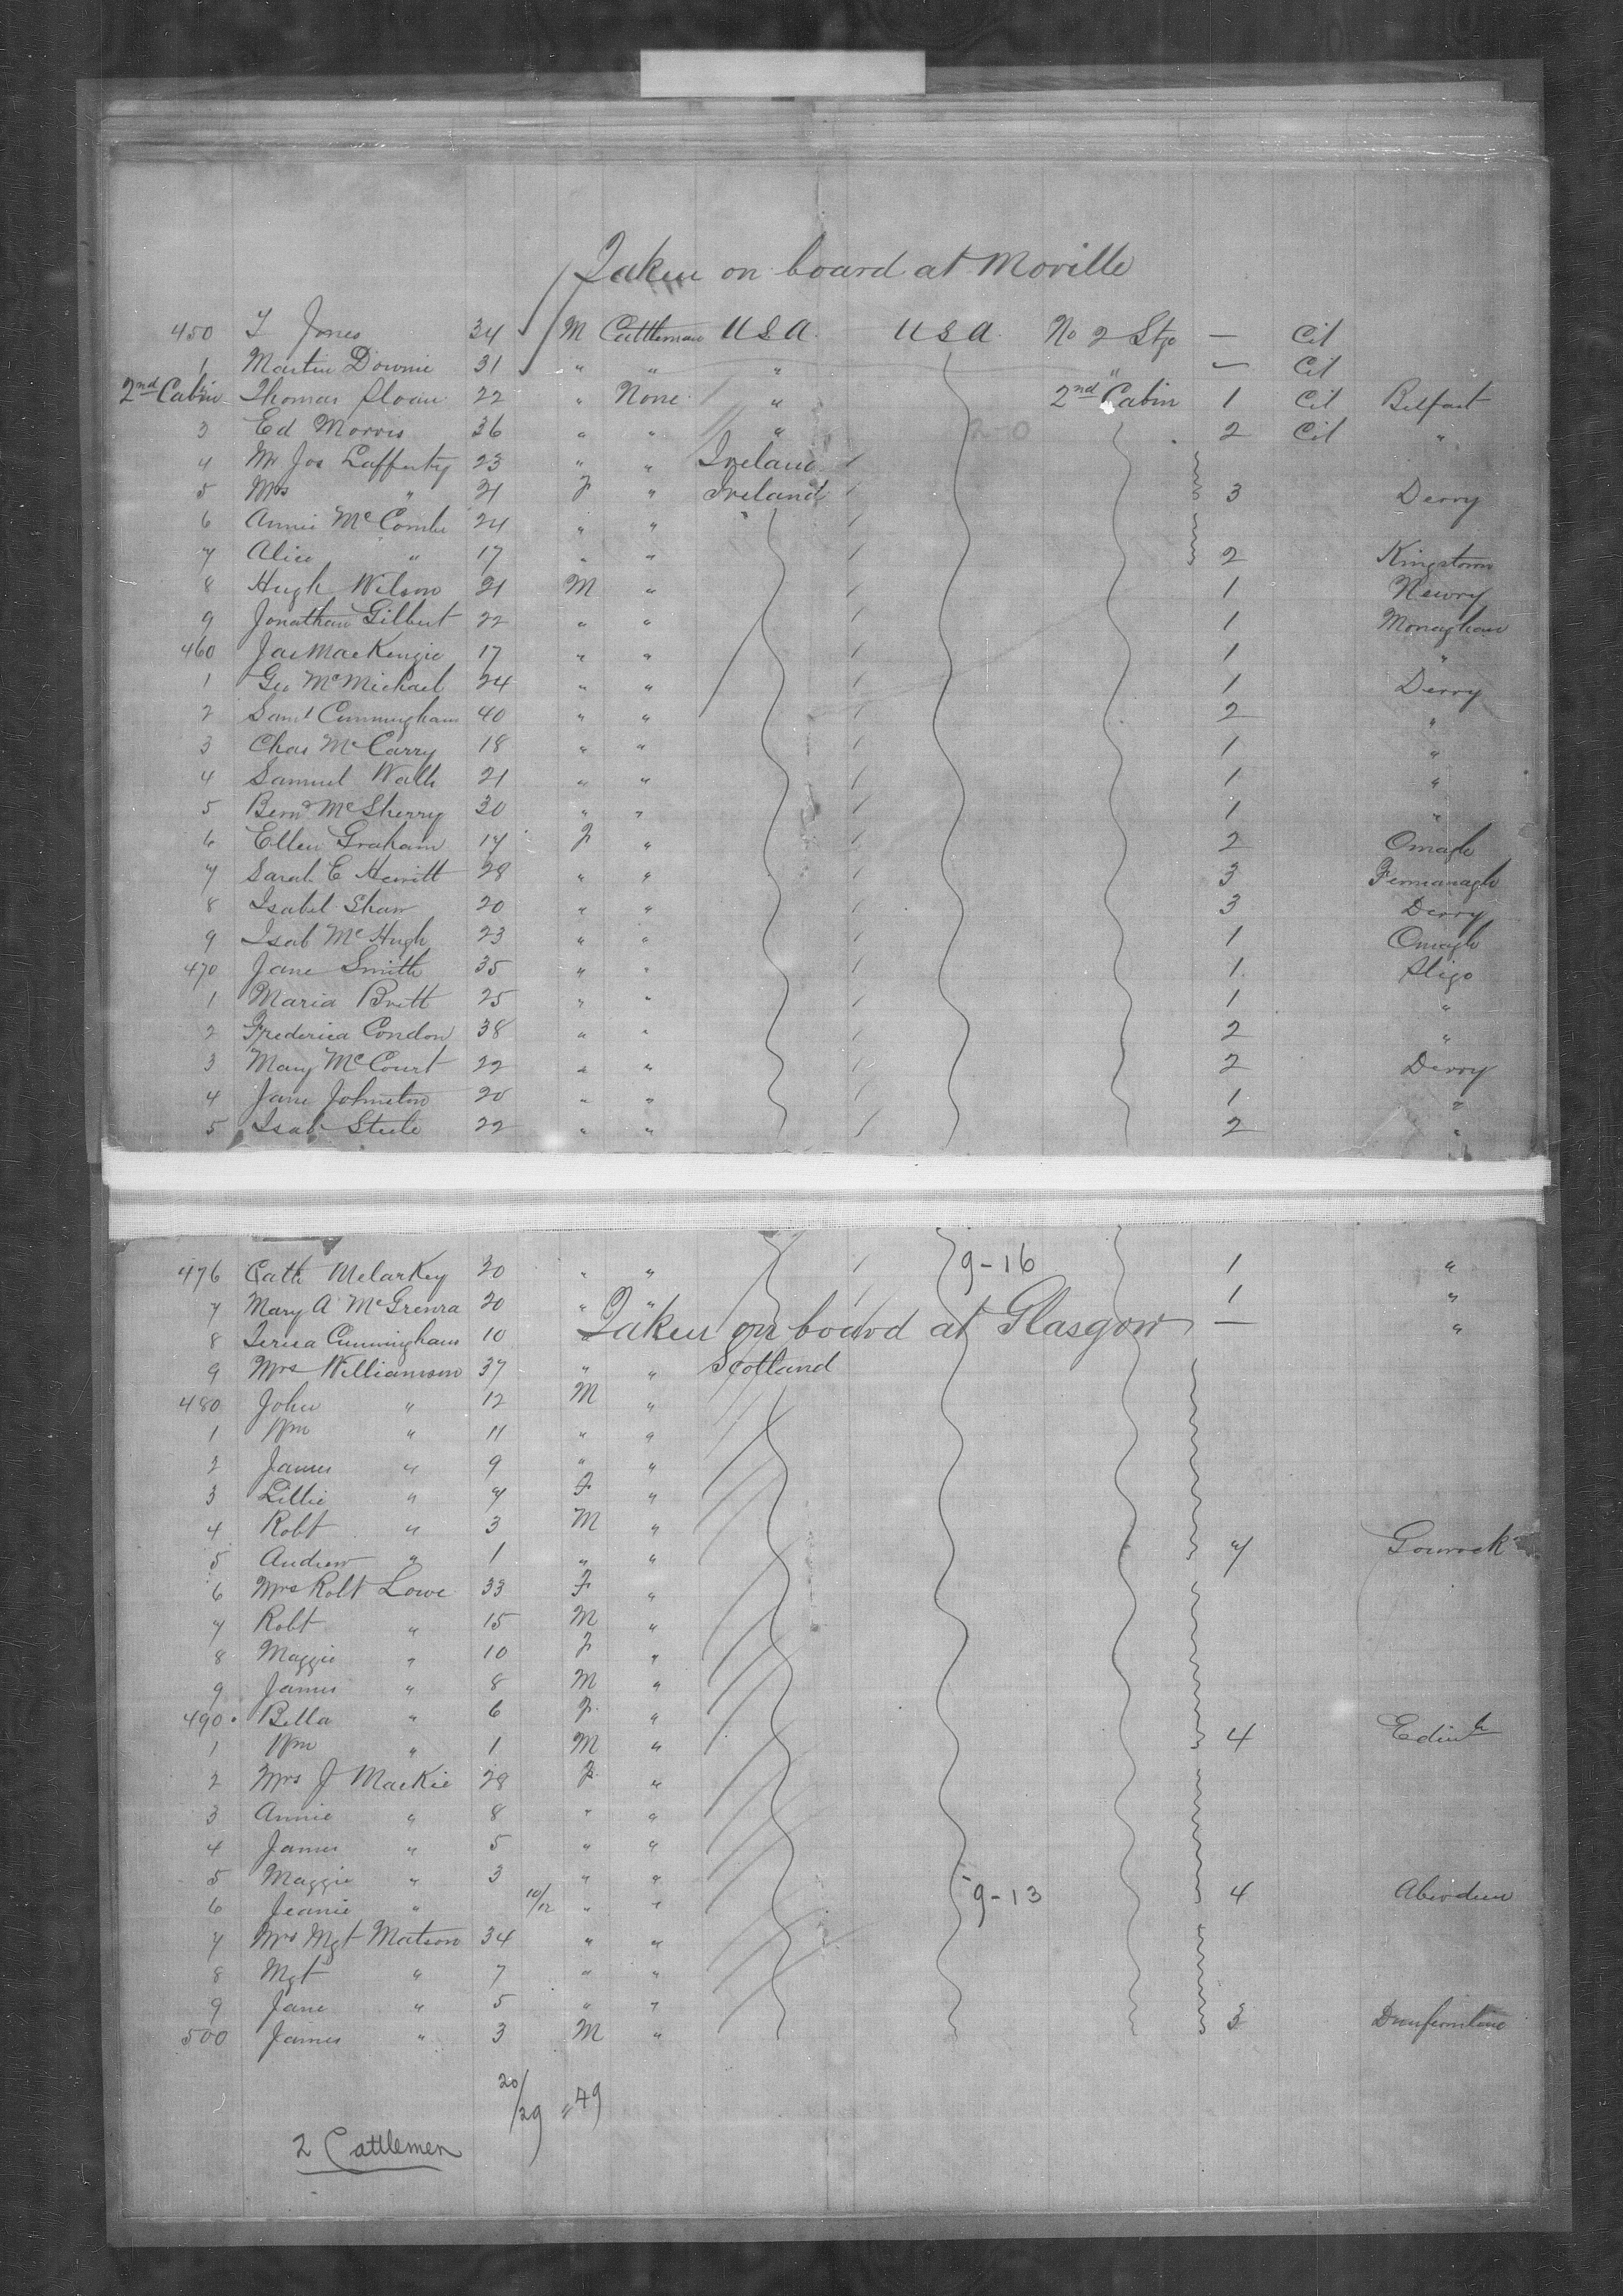 Taken on board at Moville
450 T Jones 34 M Cattleman U S A. U S A. No 2 Stge — Cit
1 Martin Downie 31 " " " " — Cit
2nd Cabin Thomas Sloan 22 " None " 2nd Cabin 1 Cit Belfast
3 Ed Morris 36 " " " 2-0 2 Cit "
4 Mr Jos Lafferty 23 " " Ireland
5 Mrs " 21 F " Ireland 3 Derry
6 Annie McCombe 24 " "
7 Alice " 17 " " 2 Kingstown
8 Hugh Wilson 21 M " 1 Newry
9 Jonathan Gilbert 22 " " 1 Monaghan
460 Jas MacKenzie 17 " " 1 "
1 Geo McMichael 24 " " 1 Derry
2 Saml Cunningham 40 " " 2 "
3 Chas McCarry 18 " " 1 "
4 Samuel Walls 21 " " 1 "
5 Bernd McSherry 30 " " 1 "
6 Ellen Graham 17 F " 2 Omagh
7 Sarah E Hewitt 28 " " 3 Fermanagh
8 Isabel Shaw 20 " " 3 Derry
9 Isab McHugh 23 " " 1 Omagh
470 Jane Smith 35 " " 1 Sligo
1 Maria Brett 25 " " 1 "
2 Frederica Condon 38 " " 2 "
3 Mary McCourt 22 " " 2 Derry
4 Jane Johnston 20 " " 1 "
5 Isab Steele 22 " " 2 "
476 Cath Melarkey 20 " " 9-16 1 "
7 Mary A McGrenra 20 " " 1 "
Taken on board at Glasgow
8 Teresa Cunningham 10 — "
9 Mrs Williamson 37 " " Scotland
480 John " 12 M "
1 Wm " 11 " "
2 James " 9 " "
3 Lillie " 7 F "
4 Robt " 3 M "
5 Andrew " 1 " " 7 Gourock
6 Mrs Robt Lowe 33 F "
7 Robt " 15 M "
8 Maggie " 10 F "
9 James " 8 M "
490 Bella " 6 F "
1 Wm " 1 M " 4 Edinh
2 Mrs J Mackie 28 F "
3 Annie " 8 " "
4 James " 5 " "
5 Maggie " 3 " "
6 Jeanie " 10/12 " " 9-13 4 Aberdeen
7 Mrs Mgt Matson 34 " "
8 Mgt " 7 " "
9 Jane " 5 " "
500 James " 3 M " 3 Dunfermline
20/29 = 49
2 Cattlemen